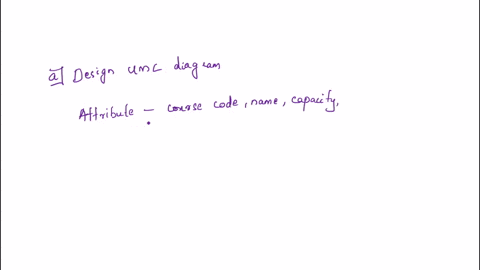 a] Design UML diagram
Attribute - course code, name, capacity,